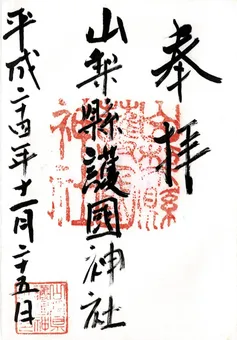 奉拝
山梨縣護國神社
平成二十四年十一月二十五日